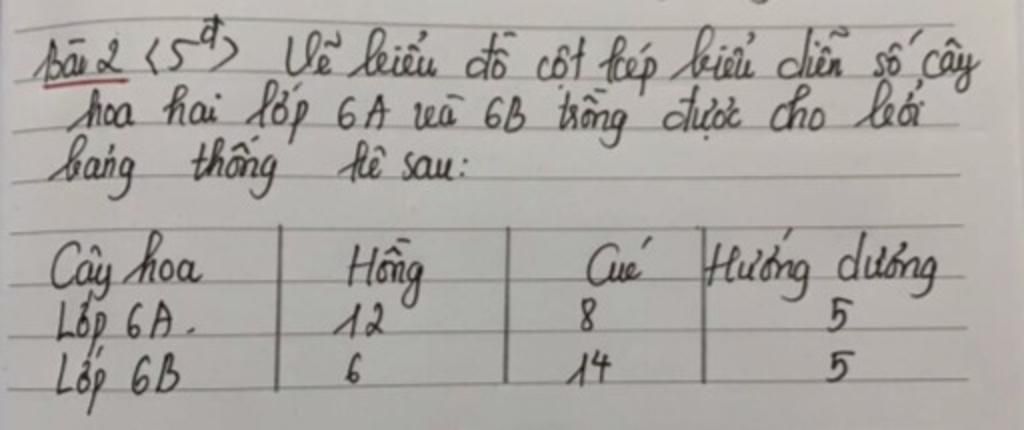 Bài 2 (5đ) Vẽ biểu đồ cột kép biểu diễn số cây
hoa hai lớp 6A và 6B trồng được cho bởi
bảng thống kê sau:
Cây hoa Hồng Cúc Hướng dương
Lớp 6A. 12 8 5
Lớp 6B 6 14 5